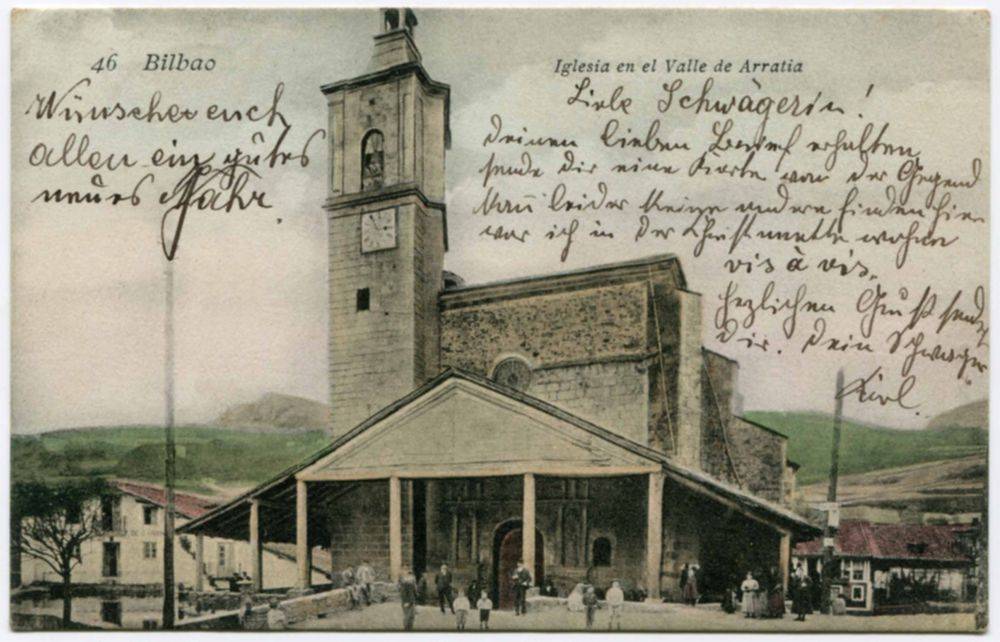 46 Bilbao
Iglesia en el Valle de Arratia
Wünscher euch
allen ein gutes
neues Jahr.
Liebe Schwägerin!
Deinen lieben Brief erhalten
sende dir eine Karte von der Gegend
kann leider keine andere finden hier
war ich in der Christmette wohnen
vis à vis.
herzlichen Gruß sendet
dir. Dein Schwager
Karl.